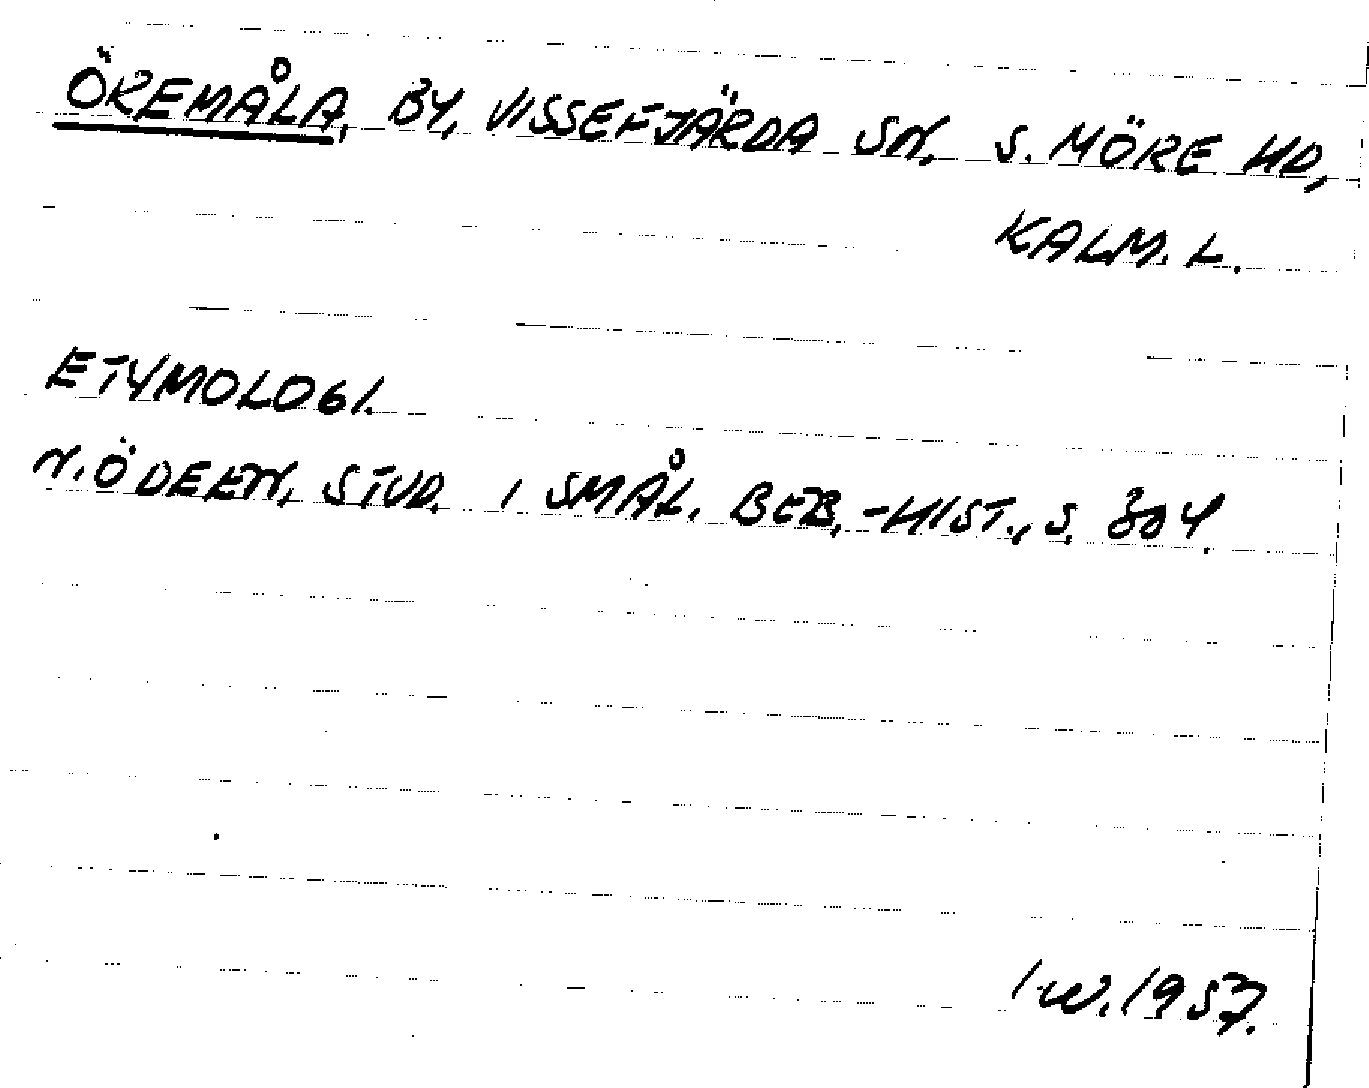 ÖREMÅLA, BY, VISSEFJÄRDA SN, S. MÖRE HD,
KALM. L.
ETYMOLOGI.
N. ÖDEEN, STUD. I SMÅL. BEB.-HIST., S. 304.
I.W. 1957.